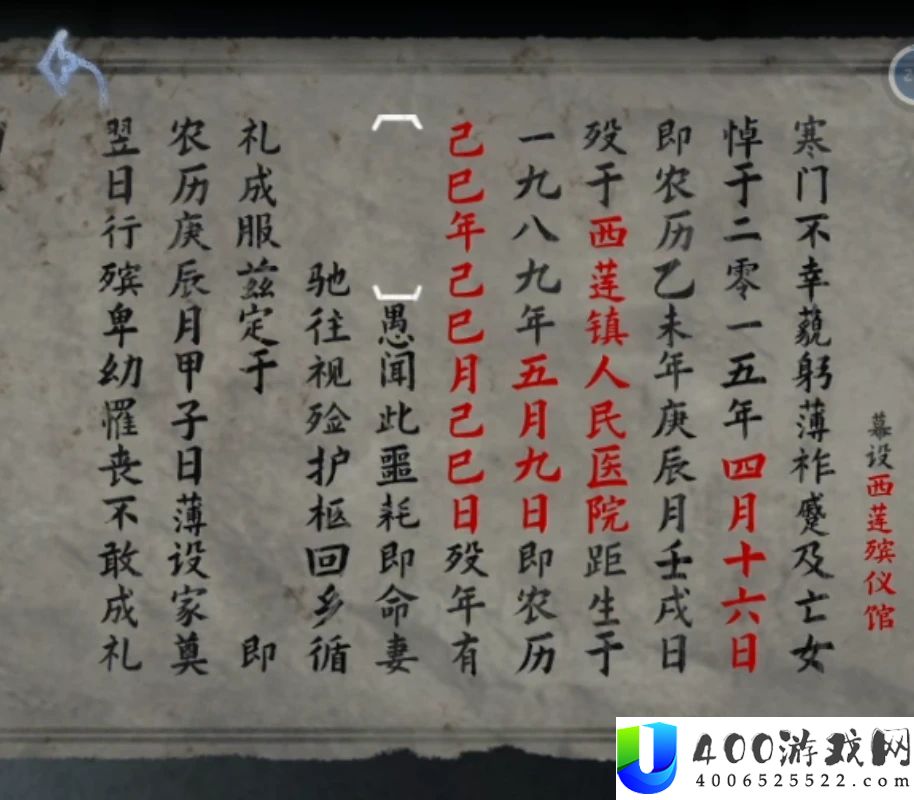 幕设西莲殡仪馆
寒门不幸藐躬薄祚蹙及亡女
悼于二零一五年四月十六日
即农历乙未年庚辰月壬戌日
殁于西莲镇人民医院距生于
一九八九年五月九日即农历
己巳年己巳月己巳日殁年有
愚闻此噩耗即命妻
驰往视殓护柩回乡循
礼成服兹定于 即
农历庚辰月甲子日薄设家奠
翌日行殡卑幼罹丧不敢成礼
400游戏网
4006525522.com